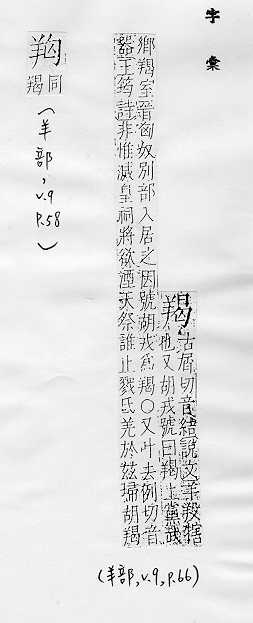 字彙
羯
古屑切音結說文羊羖犗
也又胡戎號曰羯上黨武
鄉羯室晉匈奴別部入居之因號胡戎為羯○又叶去例切音
器王筠詩非惟滅皇祠將欲湮天祭誰止戮氐羌於茲埽胡羯
(羊部,v.9,p.66)
𦍩同
羯
(羊部,v.9
p.58)